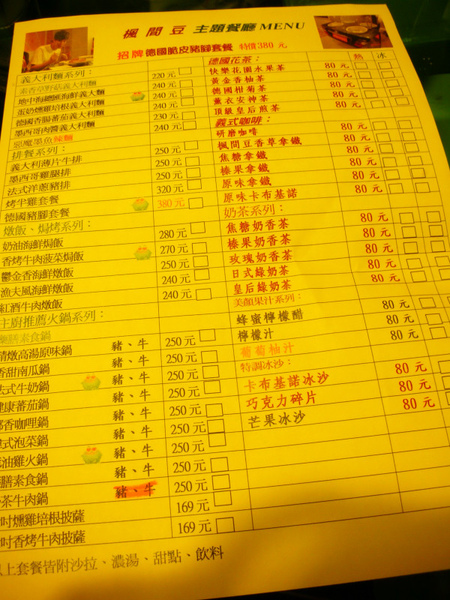 楓閒豆 主題餐廳 MENU
招牌德國脆皮豬腳套餐 特價380 元
義大利麵系列：
素香草野菇義大利麵 220 元
地中海鯷龍海鮮義大利麵 240 元
蛋奶燻雞培根義大利麵 240 元
德國香腸蕃茄義大利麵 240 元
墨西哥肉醬義大利麵 230 元
惡魔墨魚辣麵 240 元
排餐系列：
義大利薄片牛排 250 元
墨西哥雞腿排 250 元
法式洋蔥豬排 250 元
烤半雞套餐 320 元
德國豬腳套餐 380 元
燉飯、焗烤系列：
奶油海鮮焗飯 280 元
香烤牛肉菠菜焗飯 270 元
鬱金香海鮮燉飯 250 元
漁夫風海鮮燉飯 240 元
紅酒牛肉燉飯 240 元
主廚推薦火鍋系列：
素食鍋
清燉高湯原味鍋 豬、牛 250 元
香甜南瓜鍋 豬、牛 250 元
法式牛奶鍋 豬、牛 250 元
健康蕃茄鍋 豬、牛 250 元
香咖哩鍋 豬、牛 250 元
式泡菜鍋 豬、牛 250 元
油雞火鍋 豬、牛 250 元
膳素食鍋 250 元
茶牛肉鍋 豬、牛 250 元
吋燻雞培根披薩 169 元
吋香烤牛肉披薩 169 元
以上套餐皆附沙拉、濃湯、甜點、飲料
德國花茶： 熱 冰
快樂花園水果茶 80 元
黃金香柚茶 80 元
德國柑菊茶 80 元
薰衣安神茶 80 元
頂級皇后煎茶 80 元
義式咖啡：
研磨咖啡 80 元
楓閒豆香草拿鐵 80 元
焦糖拿鐵 80 元
榛果拿鐵 80 元
原味拿鐵 80 元
原味卡布基諾 80 元
奶茶系列：
焦糖奶香茶 80 元
榛果奶香茶 80 元
玫瑰奶香茶 80 元
日式綠奶茶 80 元
皇后綠奶茶 80 元
美顏果汁系列：
蜂蜜檸檬醋 80 元
檸檬汁 80 元
葡萄柚汁
特調冰沙：
卡布基諾冰沙 80 元
巧克力碎片 80 元
芒果冰沙 80 元